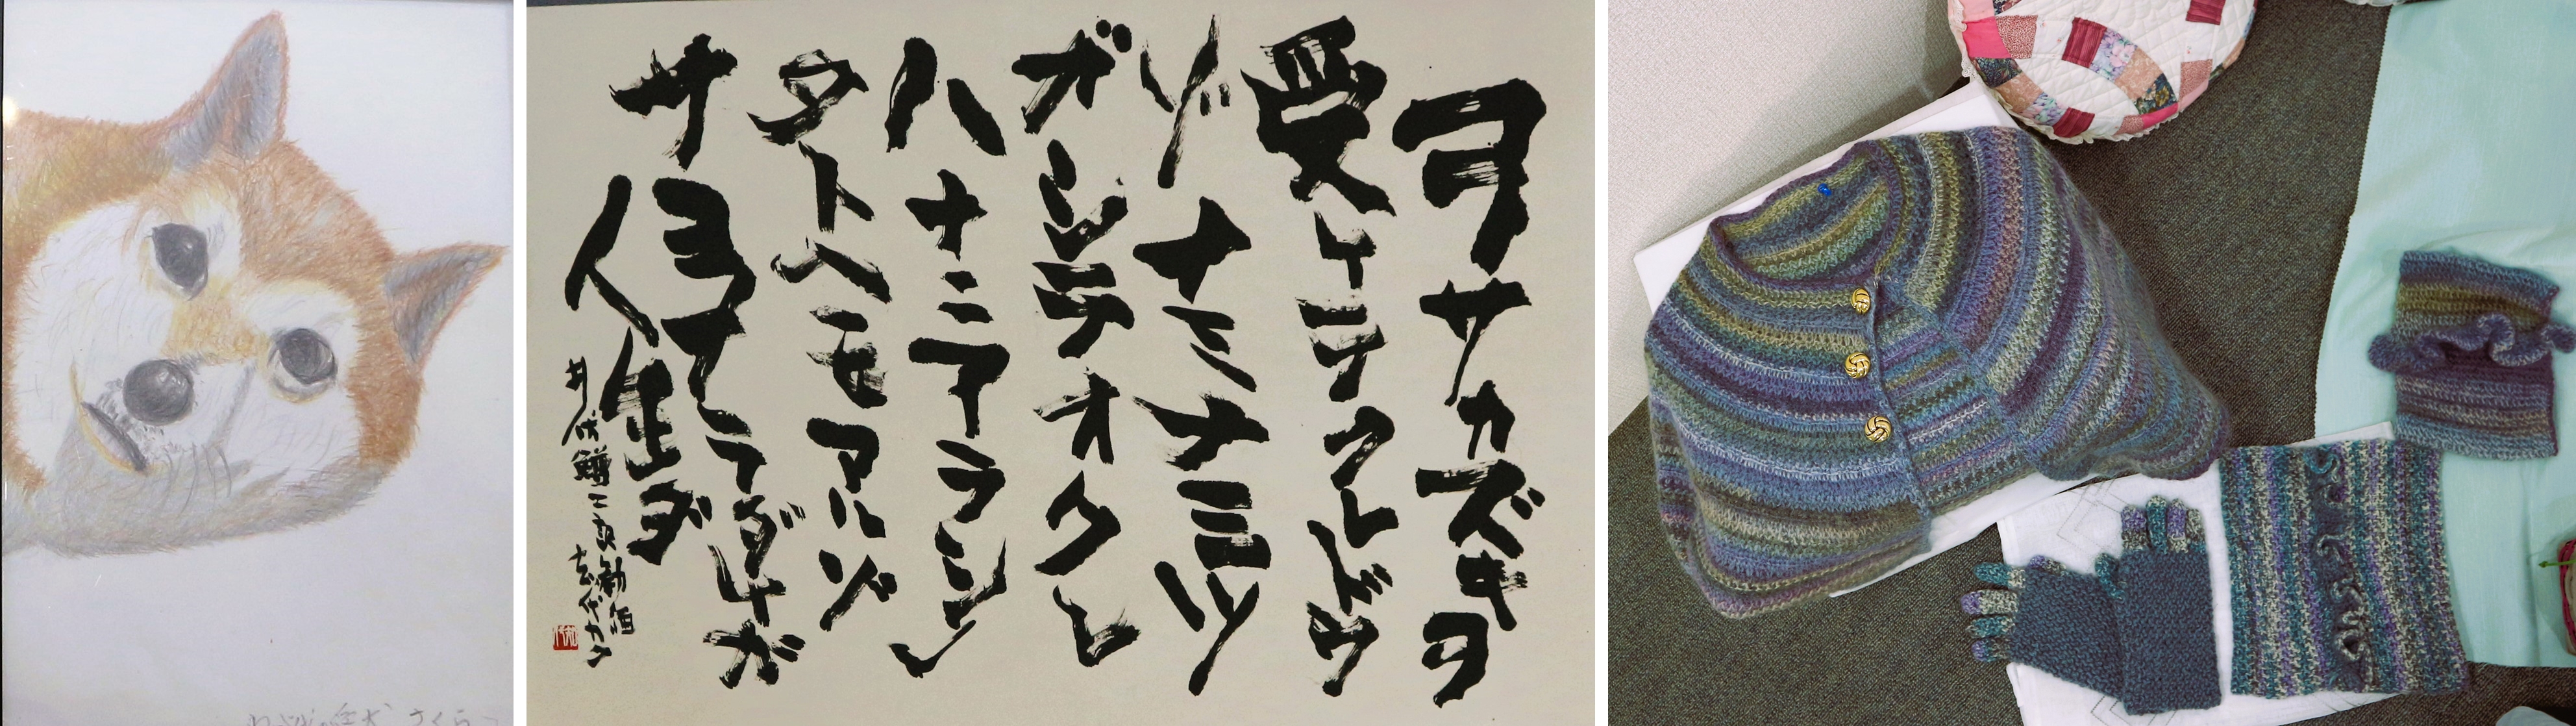 さくら
コノサカズキヲ
受ケテクレドウ
ゾナミナミツ
ガシテオクレ
ハナニアラシノ
タトヘモアルゾ
サヨナラダケガ
人生ダ
井伏鱒二
勧酒